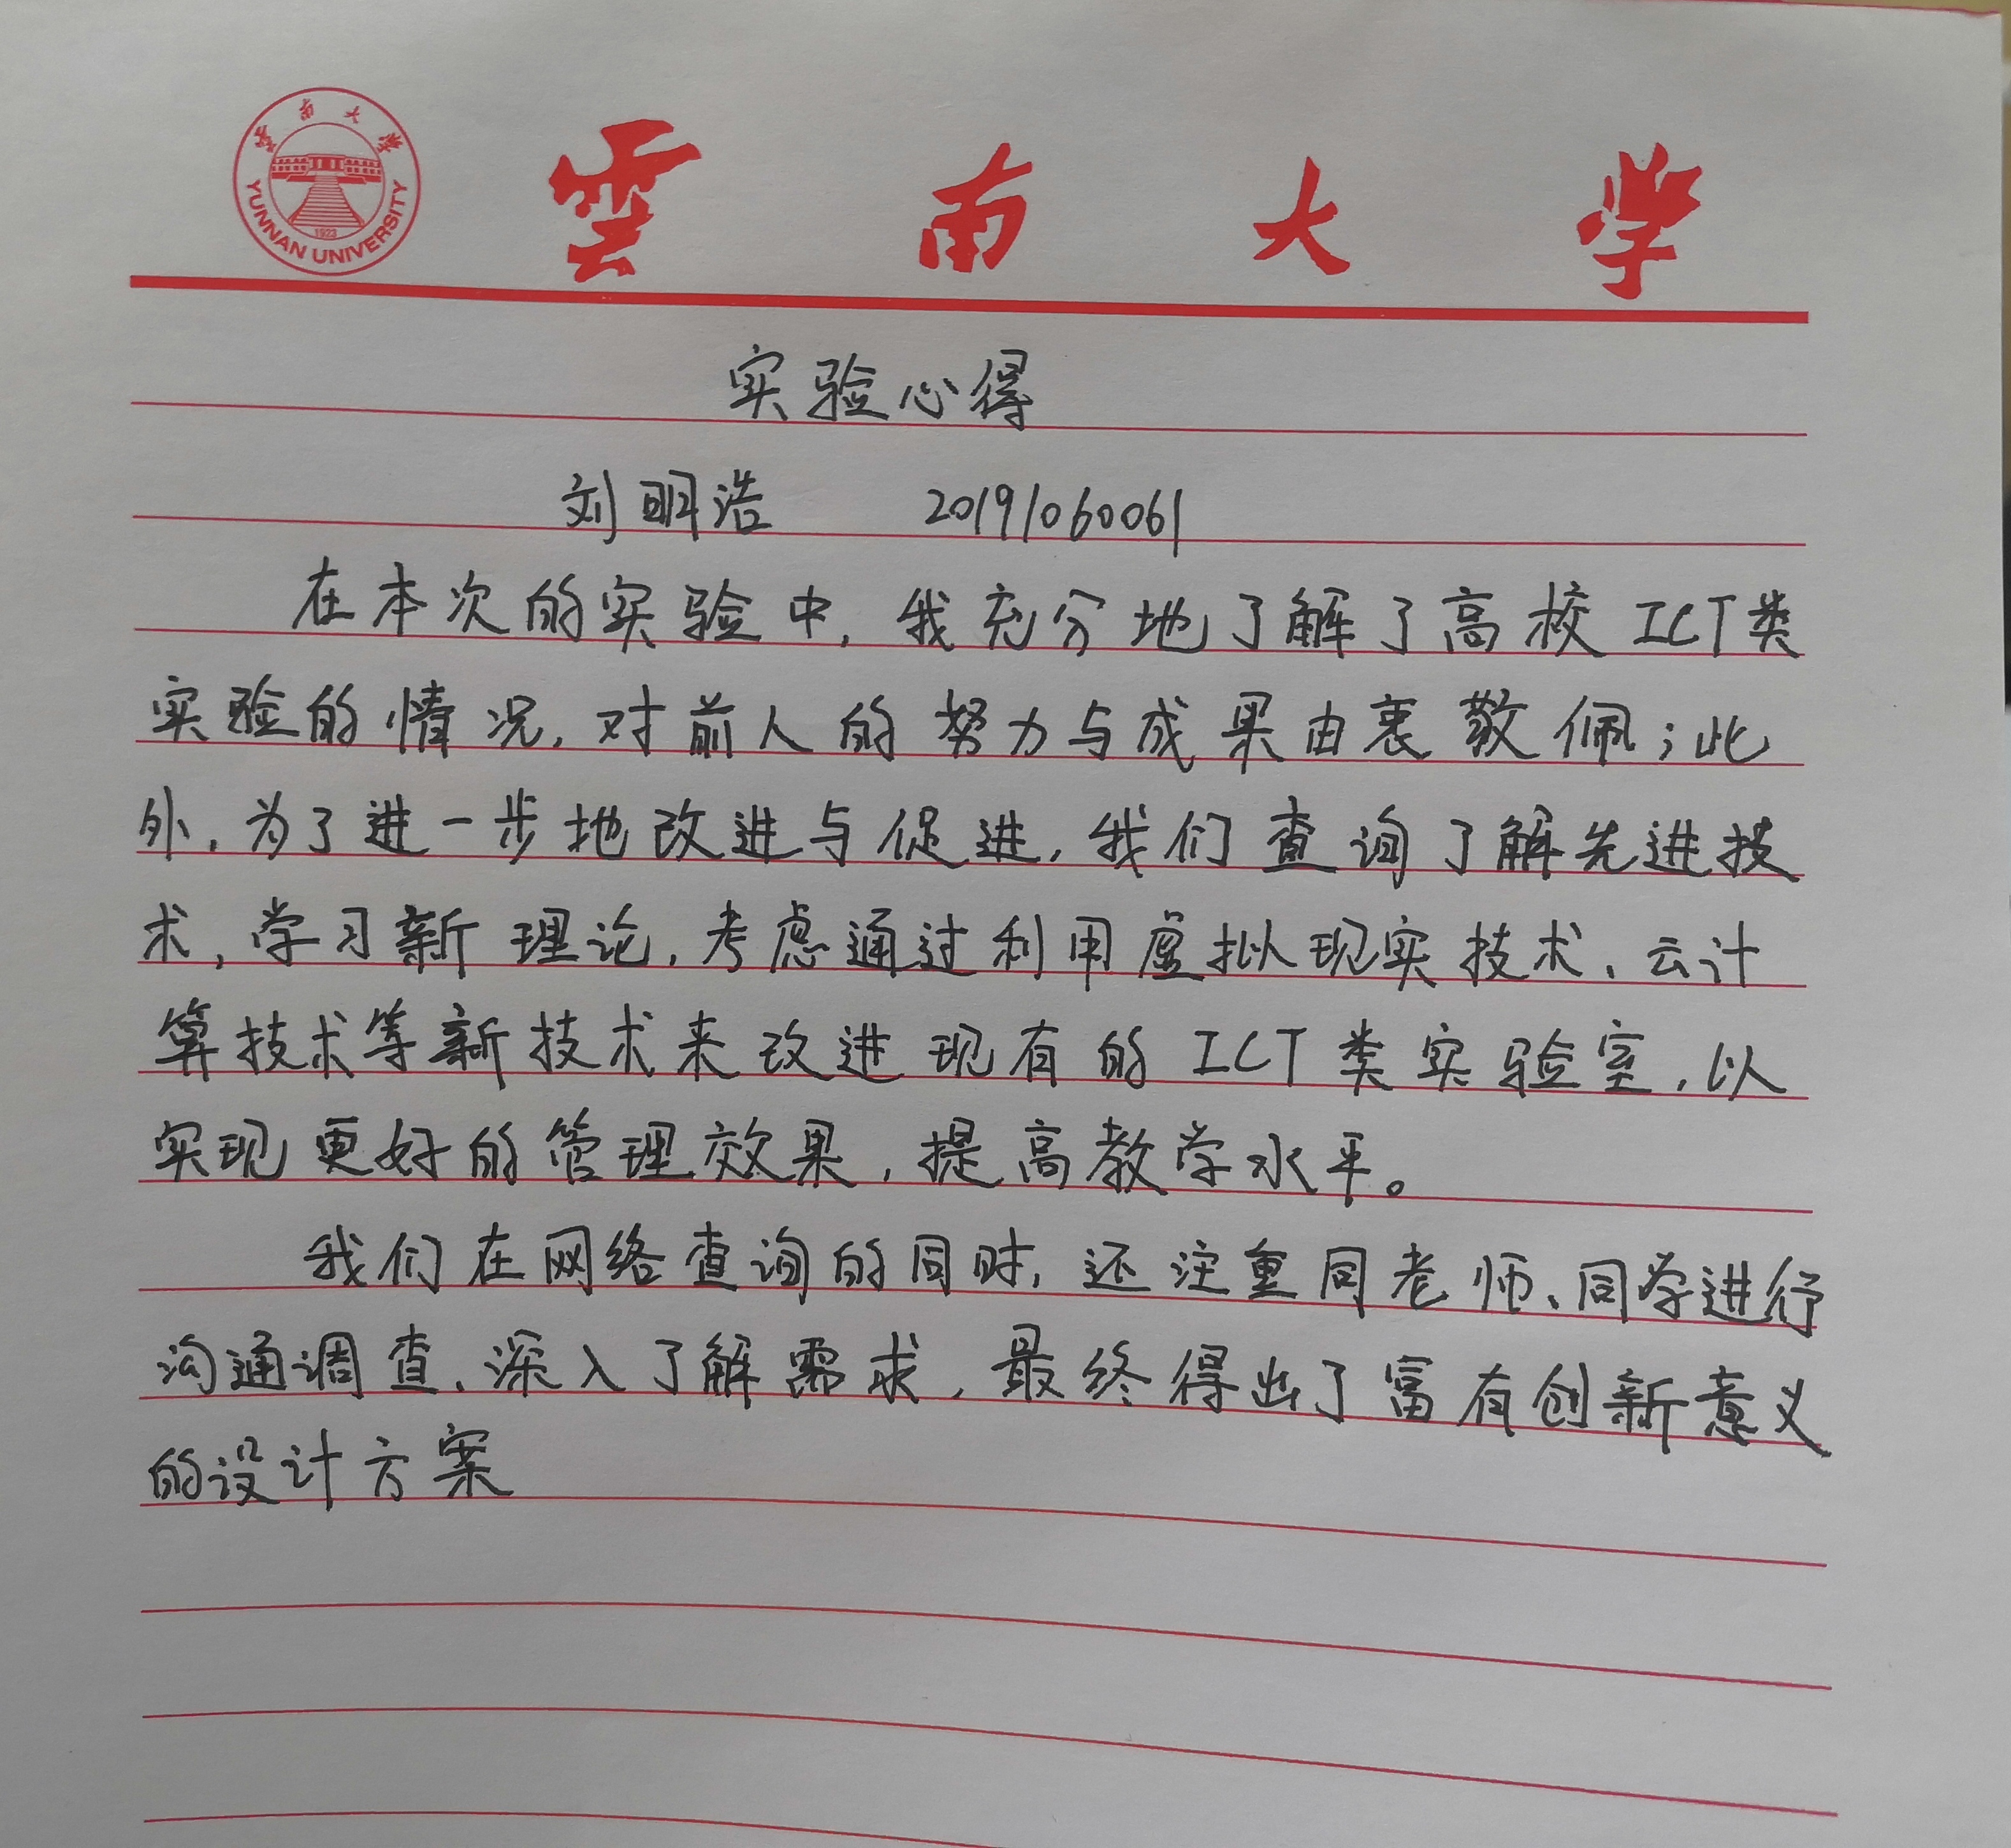 雲南大学
雲南大学
YUNNAN UNIVERSITY
1923
实验心得
刘明浩 20191060061
在本次的实验中,我充分地了解了高校ICT类
实验的情况,对前人的努力与成果由衷敬佩;此
外,为了进一步地改进与促进,我们查询了解先进技
术,学习新理论,考虑通过利用虚拟现实技术、云计
算技术等新技术来改进现有的ICT类实验室,以
实现更好的管理效果,提高教学水平。
我们在网络查询的同时,还注重同老师、同学进行
沟通调查、深入了解需求,最终得出了富有创新意义
的设计方案